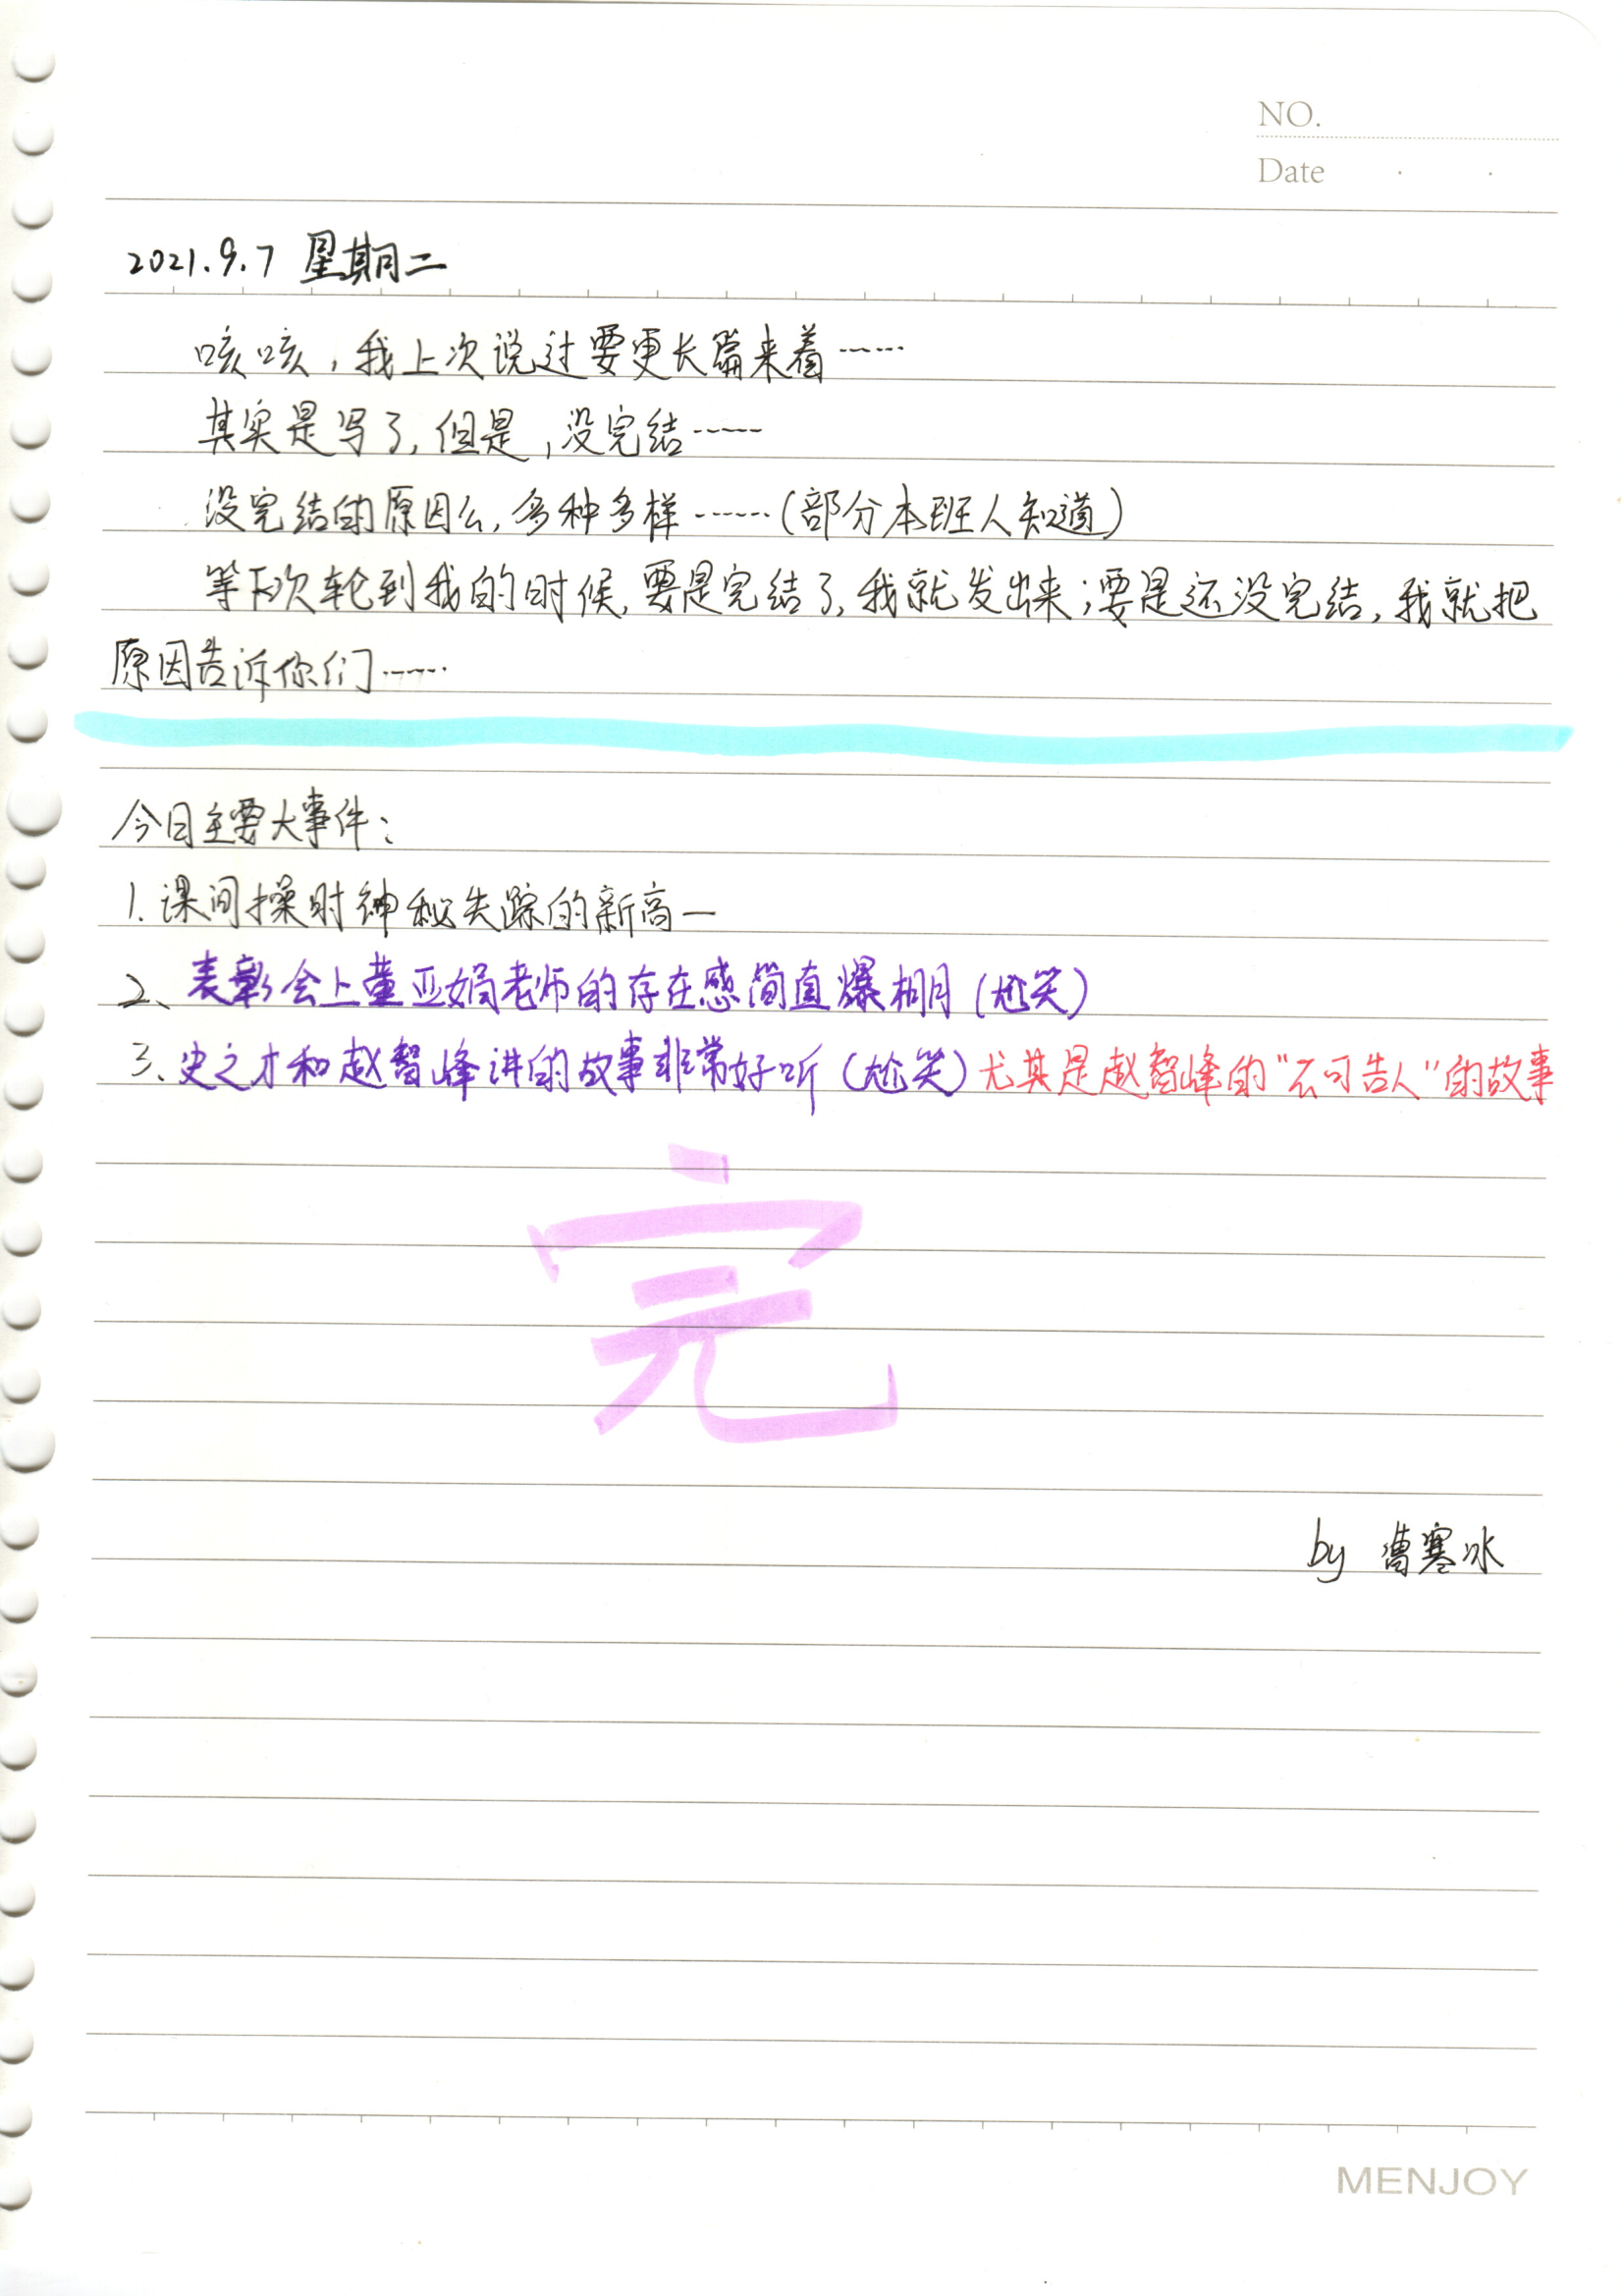 NO.
Date
2021.9.7 星期二
咳咳，我上次说过要更长篇来着……
其实是写了，但是，没完结……
没完结的原因么，多种多样……（部分本班人知道）
等下次轮到我的时候，要是完结了，我就发出来；要是还没完结，我就把
原因告诉你们……
今日主要大事件：
1.课间操时神秘失踪的新高一
2、表彰会上董亚娟老师的存在感简直爆棚（尬笑）
3、史之才和赵智峰讲的故事非常好听（尬笑）尤其是赵智峰的“不可告人”的故事
完
by 曹寒冰
MENJOY